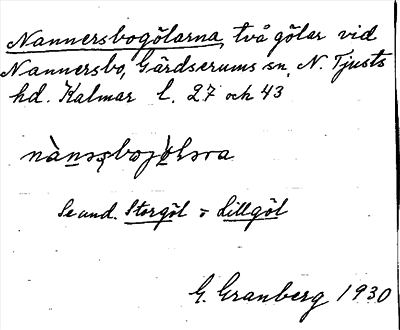 Nannersbogölarna, två gölar vid
Nannersbo, Gärdserums sn, N. Tjusts
hd. Kalmar l. 27 och 43
Se and. Storgöl o Lillgöl
G. Granberg 1930